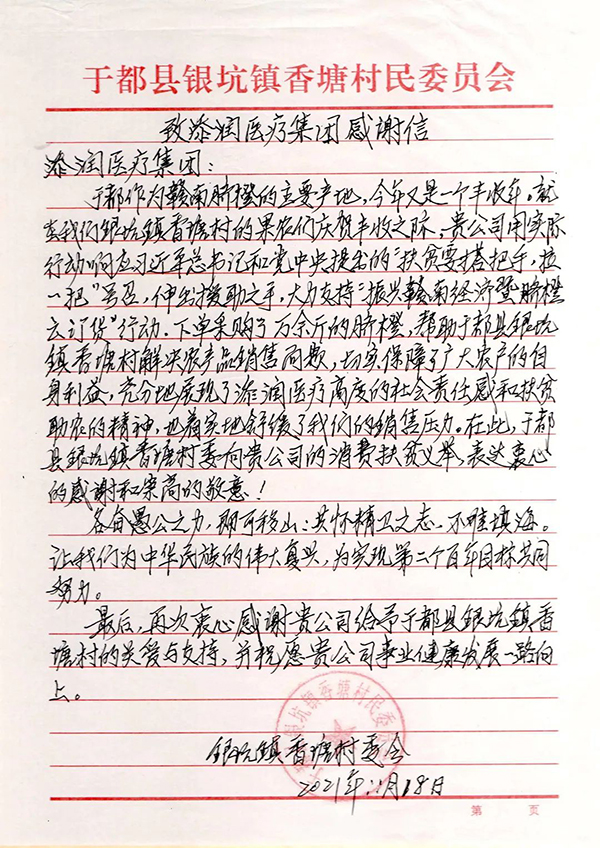 于都县银坑镇香塘村民委员会
致添润医疗集团感谢信
添润医疗集团：
于都作为赣南脐橙的主要产地，今年又是一个丰收年。就
在我们银坑镇香塘村的果农们庆贺丰收之际，贵公司用实际
行动响应习近平总书记和党中央提出的“扶贫要搭把手，拉
一把”号召，伸出援助之手，大力支持“振兴赣南经济暨脐橙
云订货”行动。下单采购了万余斤的脐橙，帮助于都县银坑
镇香塘村解决农产品销售问题，切实保障了广大农户的自
身利益，充分地展现了添润医疗高度的社会责任感和扶贫
助农的精神，也着实地舒缓了我们的销售压力。在此，于都
县银坑镇香塘村委向贵公司的消费扶贫义举，表达衷心
的感谢和崇高的敬意！
各奋愚公之力，即可移山；共怀精卫之志，不难填海。
让我们为中华民族的伟大复兴，为实现第二个百年目标共同
努力。
最后，再次衷心感谢贵公司给予于都县银坑镇香
塘村的关爱与支持，并祝愿贵公司事业健康发展一路向
上。
银坑镇香塘村委会
2021年11月18日
第 页